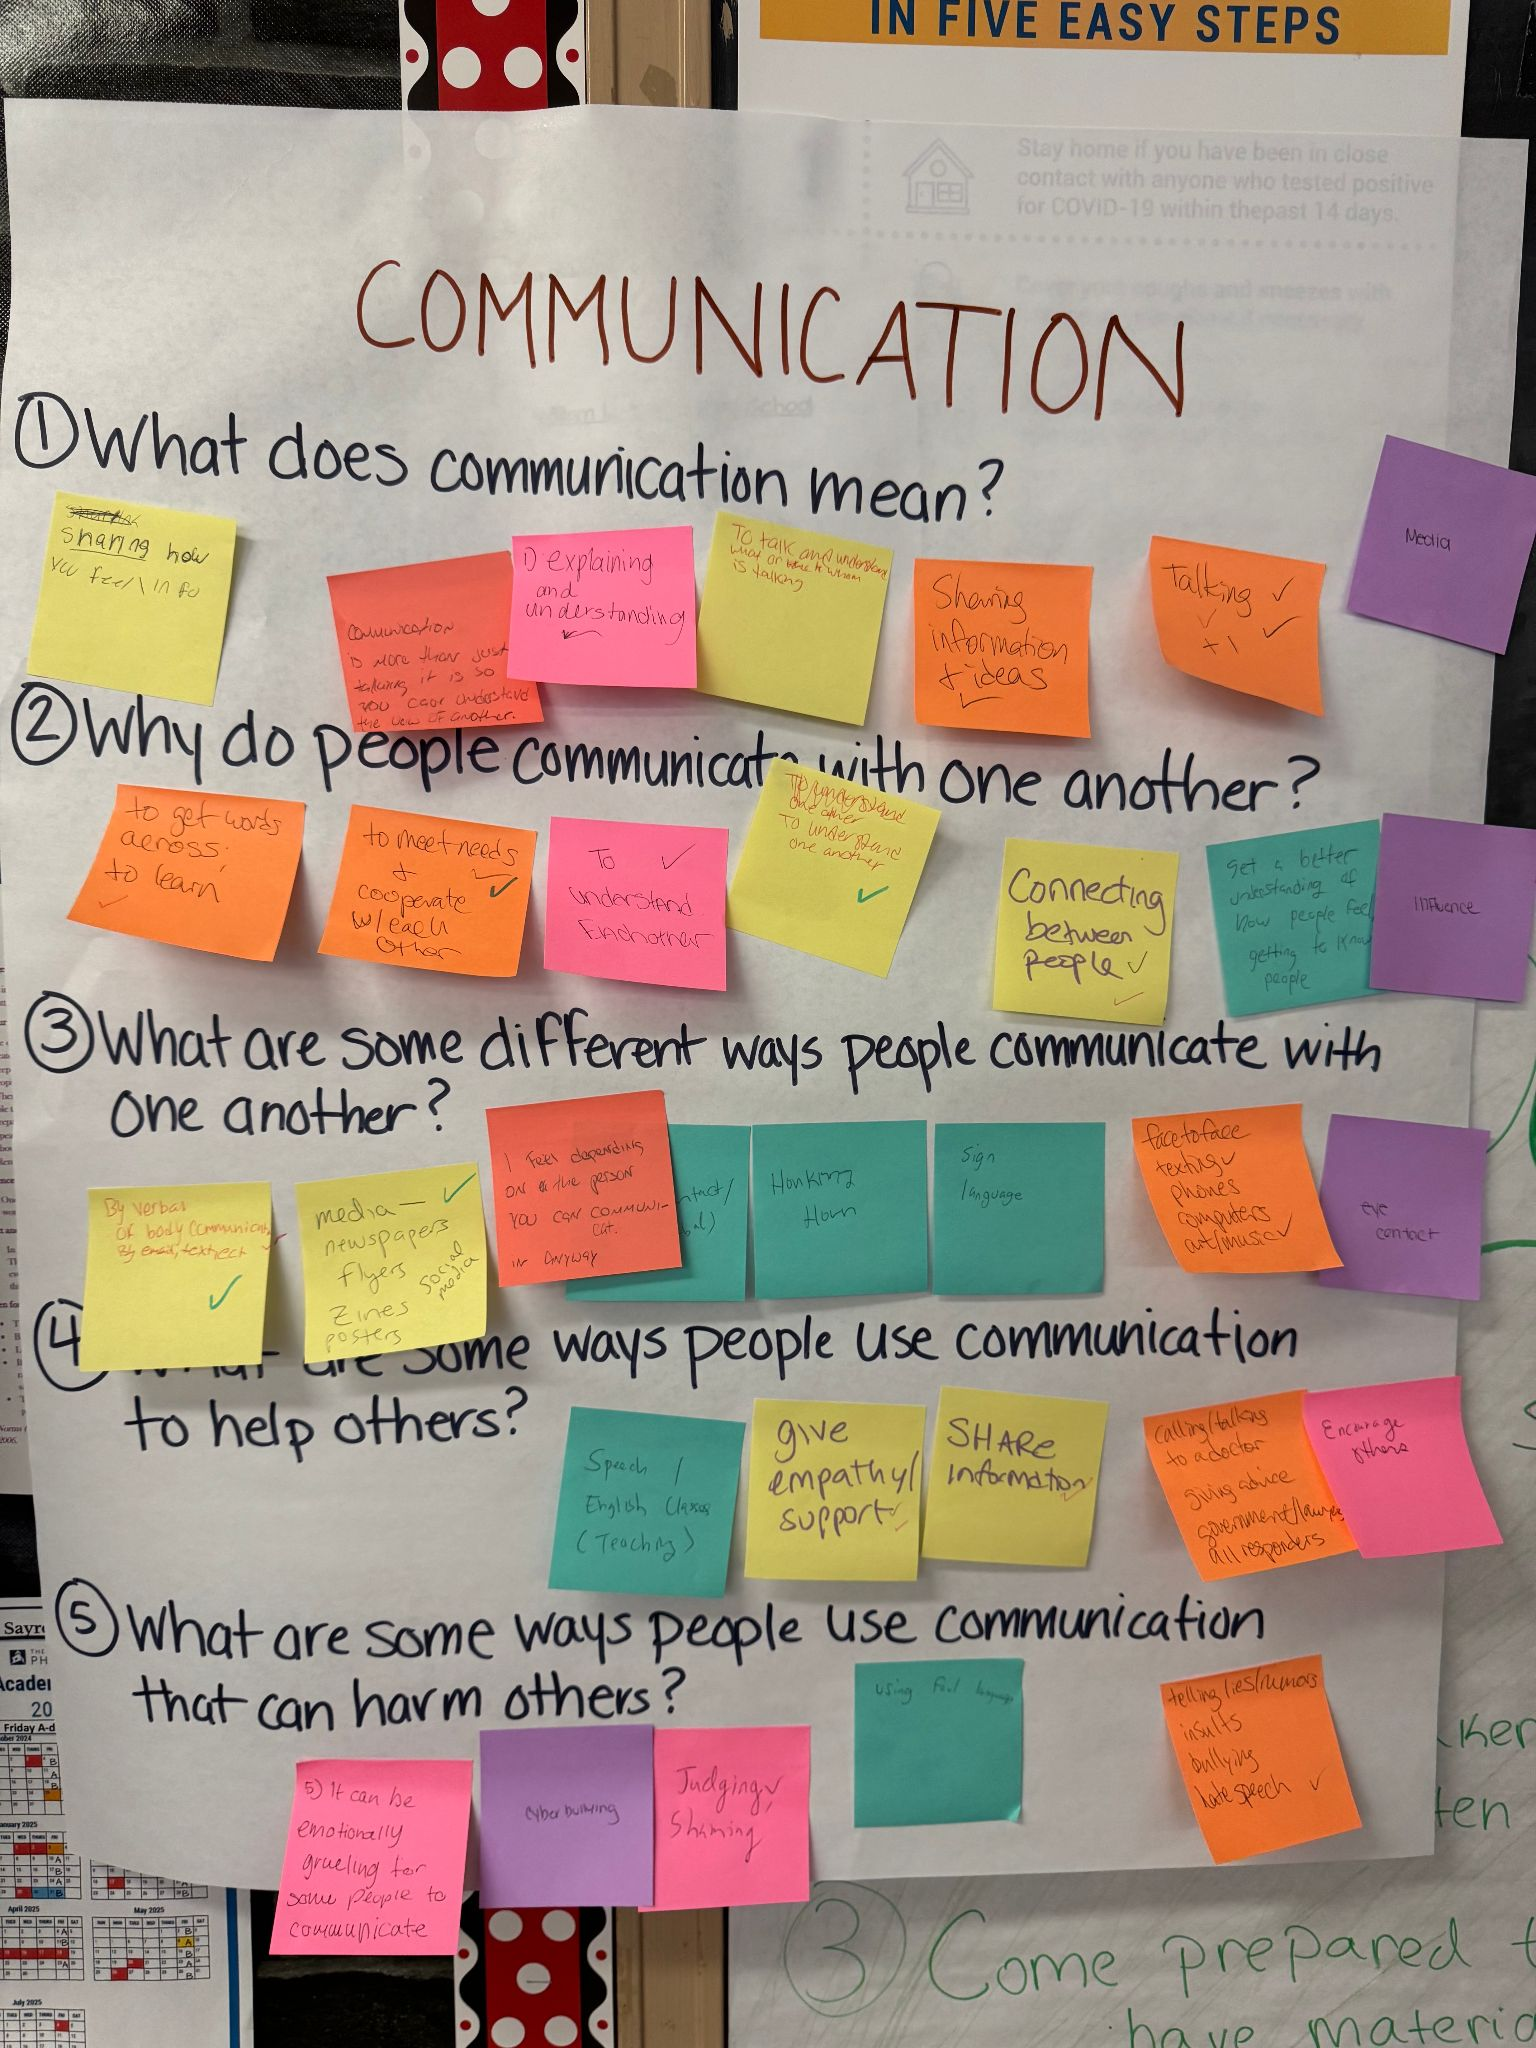 IN FIVE EASY STEPS
Stay home if you have been in close
contact with anyone who tested positive
for COVID-19 within thepast 14 days.
Cover your coughs and sneezes with
COMMUNICATION
① What does communication mean?
Sharing how
you feel \ info
communication
is more than just
talking it is so
you can understand
the view of another.
1) explaining
and
understanding
To talk and understand
what or to whom
is talking
Sharing
information
+ ideas
Talking
+1
Media
② Why do people communicate with one another?
to get words
across.
to learn
to meet needs
+
cooperate
w/each
other
To
understand
Eachother
To understand
one other
To understand
one another
Connecting
between
people
Get a better
understanding of
how people feel
getting to know
people
Influence
③ What are some different ways people communicate with
one another?
By verbal
or body communicat
By email, text ect
media —
newspapers
flyers
zines
posters
social
media
I feel depending
on the person
you can communi-
cat.
in anyway
ntact/
Honking
Horn
Sign
language
face to face
texting
phones
computers
art/music
eye
contact
④ What are some ways people use communication
to help others?
Speech /
English Classes
(Teaching)
give
empathy/
support
SHARE
information
calling/talking
to a doctor
giving advice
government/lawye
all responders
Encourage
others
⑤ What are some ways people use communication
that can harm others?
5) It can be
emotionally
grueling for
some people to
communicate
cyber bullying
Judging,
Shaming
using foul language
telling lies/rumors
insults
bullying
hate speech
Sayre
Acade
20
Friday A-d
April 2025
May 2025
July 2025
ken
ten
③ Come prepared t
have materia